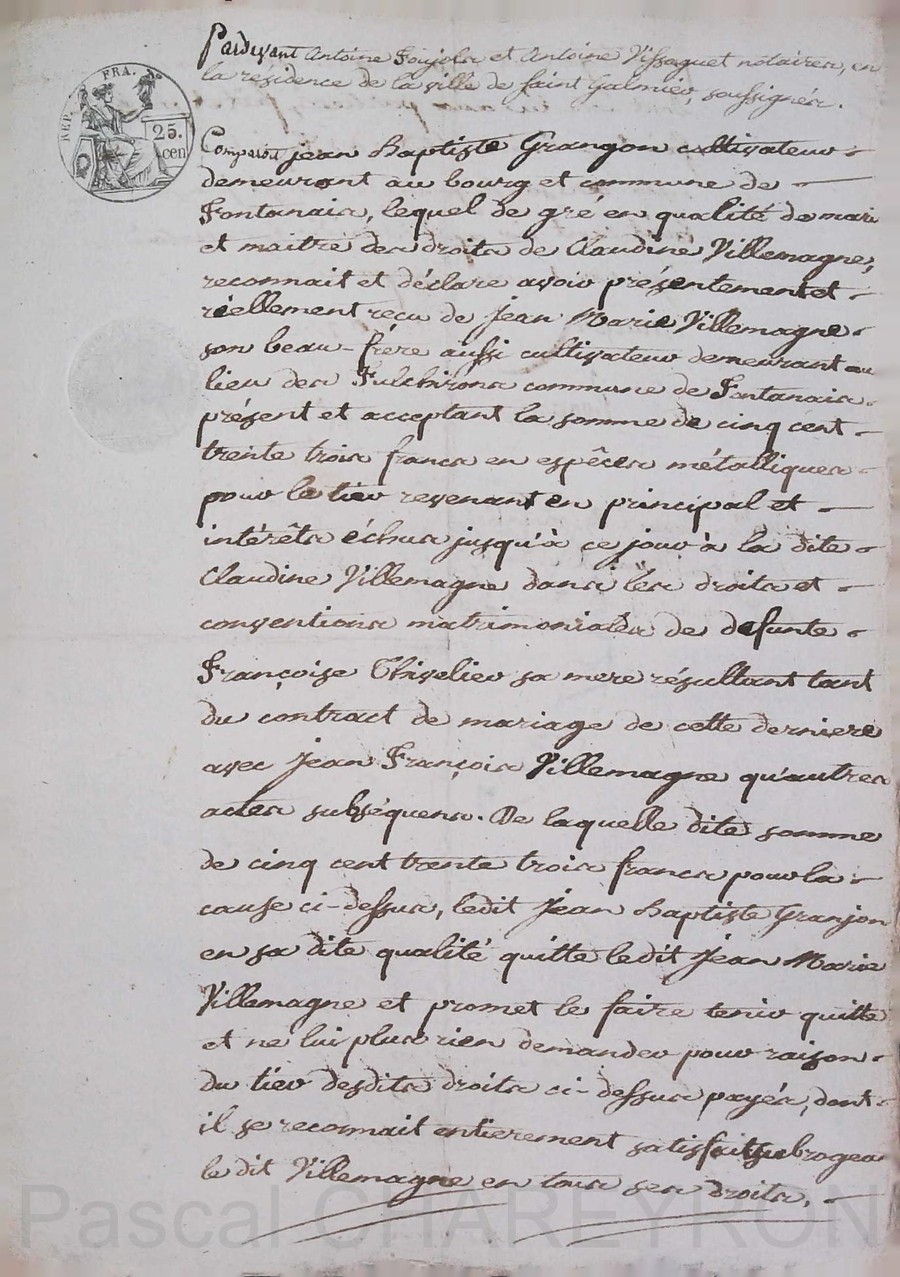 REP. FRA.
25.
cen
Pardevant Antoine Foujols et Antoine Vissaguet notaires, en
la residence de la ville de Saint Galmier, soussignés.
Comparoit jean Baptiste Grangon cultivateur
demeurant au bourg et commune de
Fontanais, lequel de gré en qualité de mari
et maitre des droits de Claudine Villemagne,
reconnait et déclare avoir présentement et
réellement recu de Jean Marie Villemagne
son beau-frère aussi cultivateur demeurant au
lieu des Fulchirons commune de Fontanais
présent et acceptant la somme de cinq cent
trente trois francs en espêces métalliques
pour le tier revenant en principal et
intérêts échus jusqu'à ce jour à la dite
Claudine Villemagne dans les droits et
conventions matrimoniales de defunte
Françoise Thivelier sa mere résultant tant
du contract de mariage de cette derniere
avec Jean François Villemagne qu'autres
actes subséquens. De laquelle dite somme
de cinq cent trente trois francs pour la
cause ci-dessus, ledit Jean Baptiste Granjon
en sa dite qualité quitte ledit Jean Marie
Villemagne et promet le faire tenir quitte
et ne lui plus rien demander pour raison
du tier desdits droits ci-dessus payés, dont
il se reconnait entierement satisfait subrogeant
le dit Villemagne en tous ses droits,
Pascal CHAREYRON